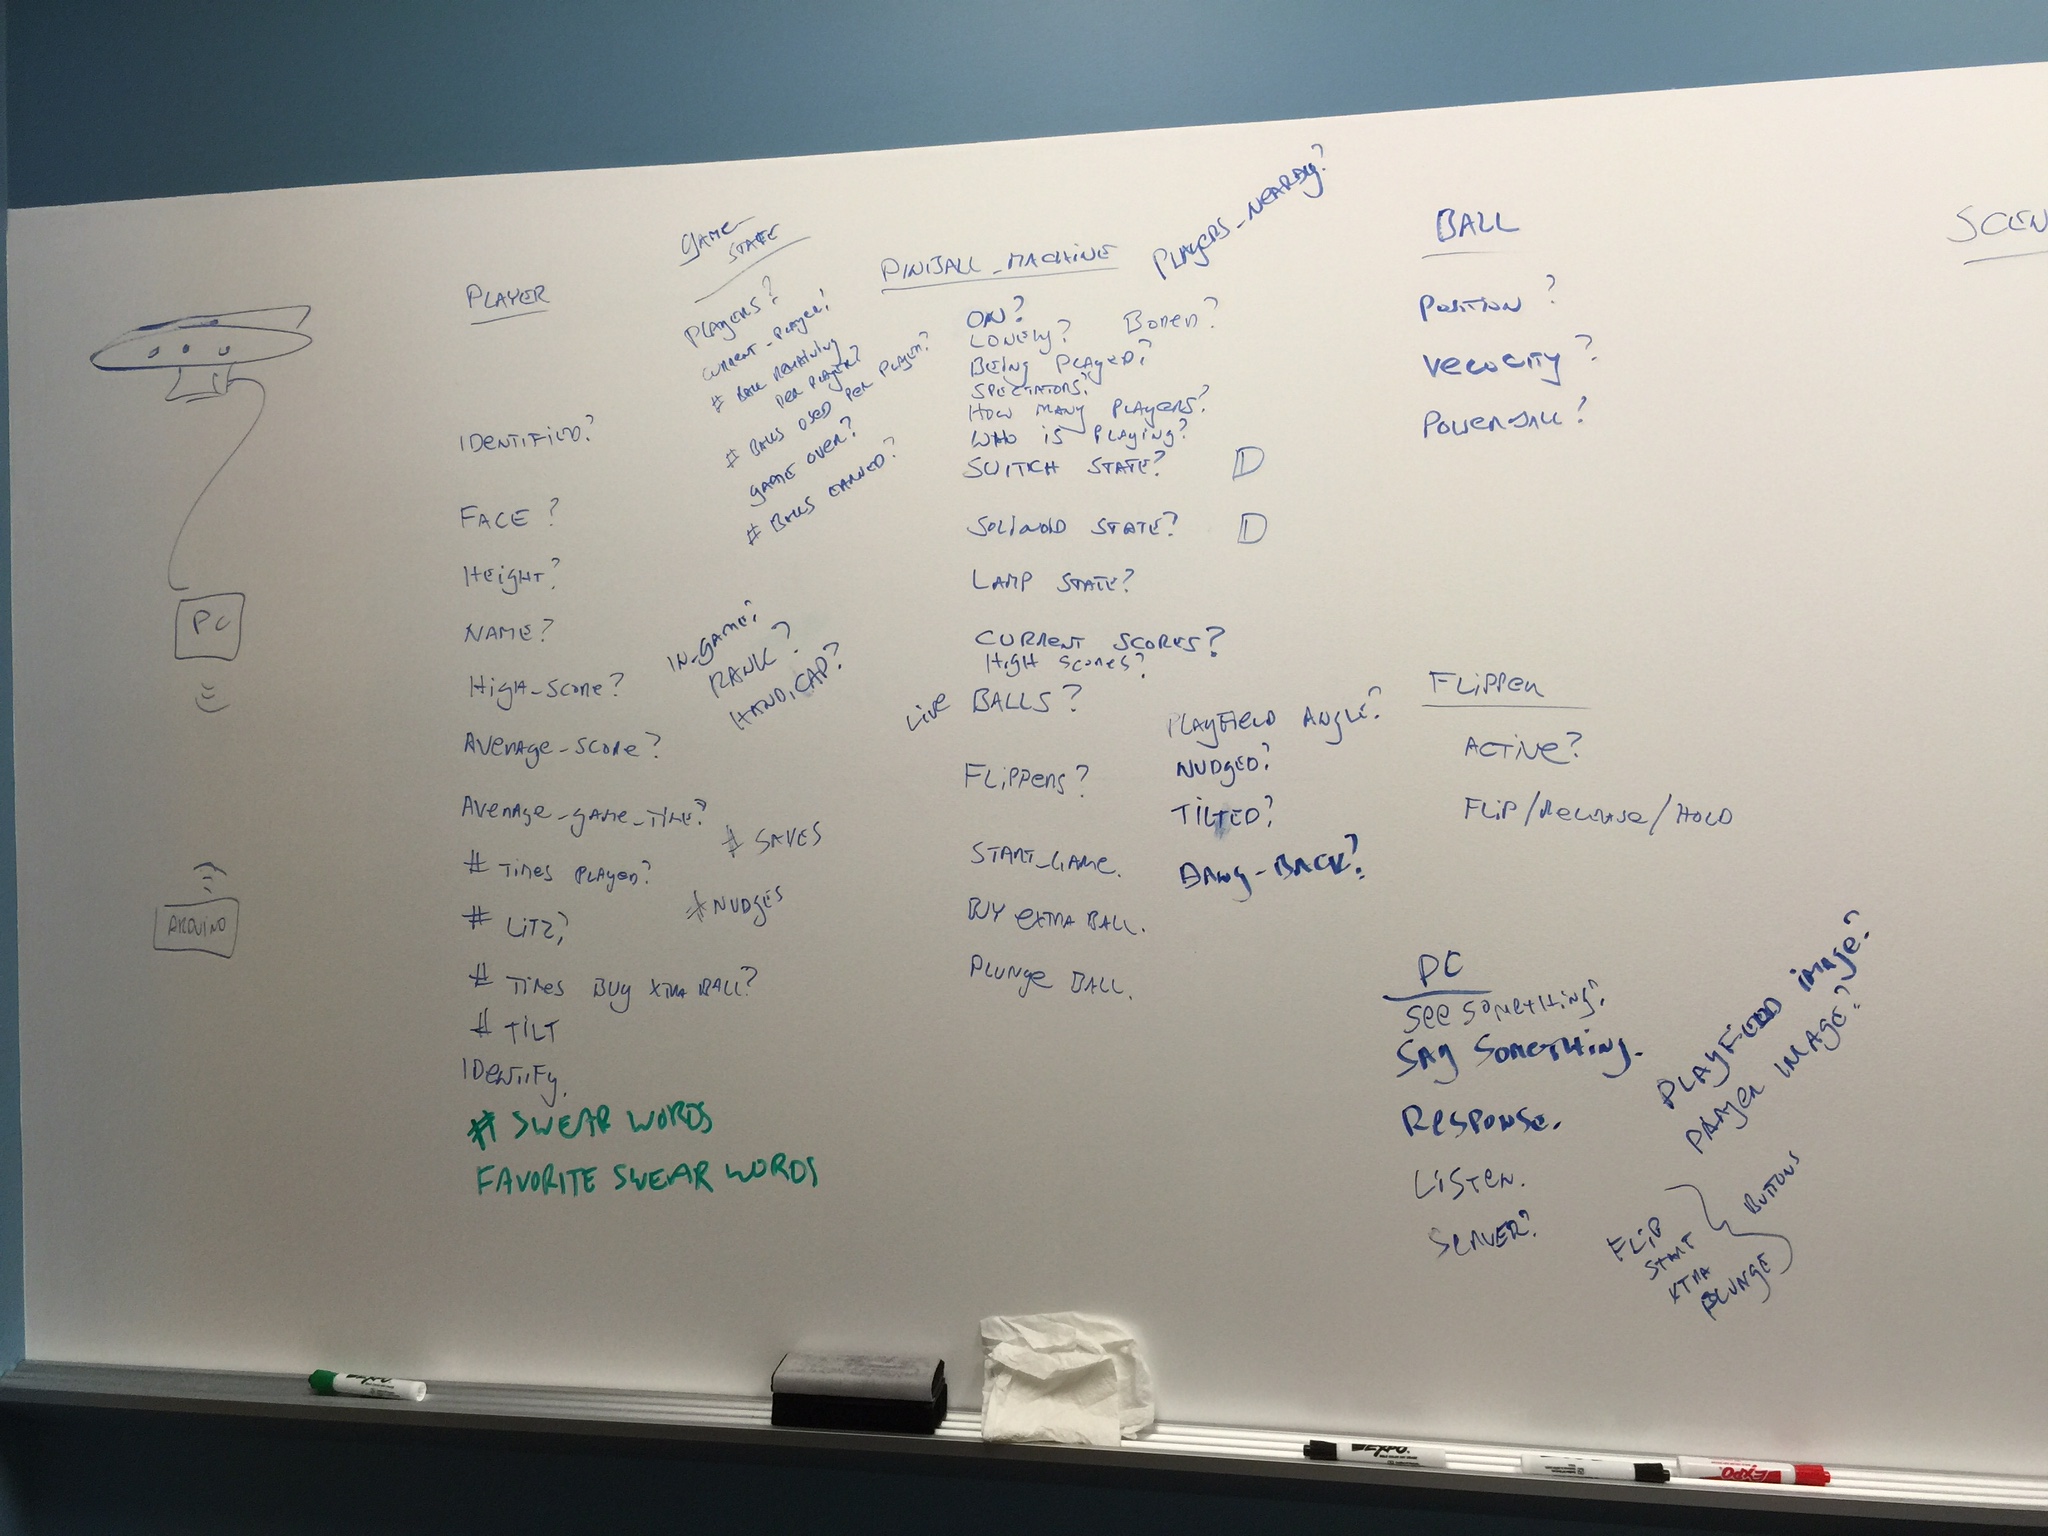 PLAYER
IDENTIFIED?
FACE?
HEIGHT?
NAME?
HIGH_SCORE?
AVERAGE_SCORE?
AVERAGE_GAME_TIME?
# TIMES PLAYED?
# LITZ?
# TIMES BUY XTRA BALL?
# TILT
IDENTIFY.
# SWEAR WORDS
FAVORITE SWEAR WORDS
IN_GAME?
RANK?
HANDICAP?
# SAVES
# NUDGES
PC
ARDUINO
GAME
STATE
PLAYERS?
CURRENT_PLAYER?
# BALL REMAINING
PER PLAYER?
# BALLS USED PER PLAYER?
GAME OVER?
# BALLS EARNED?
PINBALL_MACHINE
PLAYERS_NEARBY?
ON?
LONELY? BORED?
BEING PLAYED?
SPECTATORS?
HOW MANY PLAYERS?
WHO IS PLAYING?
SWITCH STATE? D
SOLINOID STATE? D
LAMP STATE?
CURRENT SCORES?
HIGH SCORES?
LIVE BALLS?
FLIPPERS?
START_GAME.
BUY EXTRA BALL.
PLUNGE BALL.
PLAYFIELD ANGLE?
NUDGED?
TILTED?
DANG-BACK?
BALL
POSITION?
VELOCITY?
POWERBALL?
FLIPPER
ACTIVE?
FLIP/RELEASE/HOLD
PC
SEE SOMETHING?
SAY SOMETHING.
RESPONSE.
LISTEN.
SERVER?
PLAYFIELD IMAGE?
PLAYER IMAGE?
FLIP
START
XTRA
PLUNGE
BUTTONS
SCEN
EXPO
EXPO
EXPO